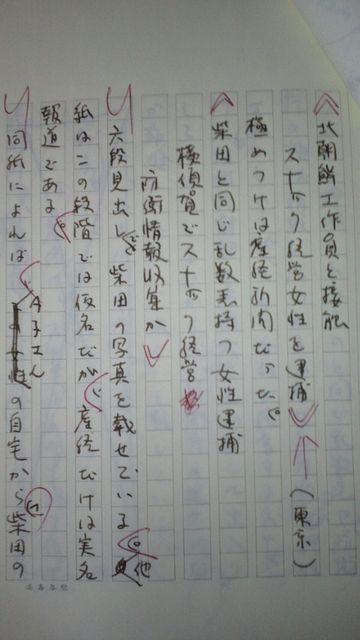 《北朝鮮工作員と接触
スナック経営女性を逮捕》(東京)
極めつけは産経新聞だった。
《柴田と同じ乱数表持つ女性逮捕
横須賀でスナック経営
防衛情報収集か》
六段見出しで柴田の写真を載せている。他
紙はこの段階では仮名だが、産経だけは実名
報道である。
同紙によれば、A子さんの自宅から柴田の